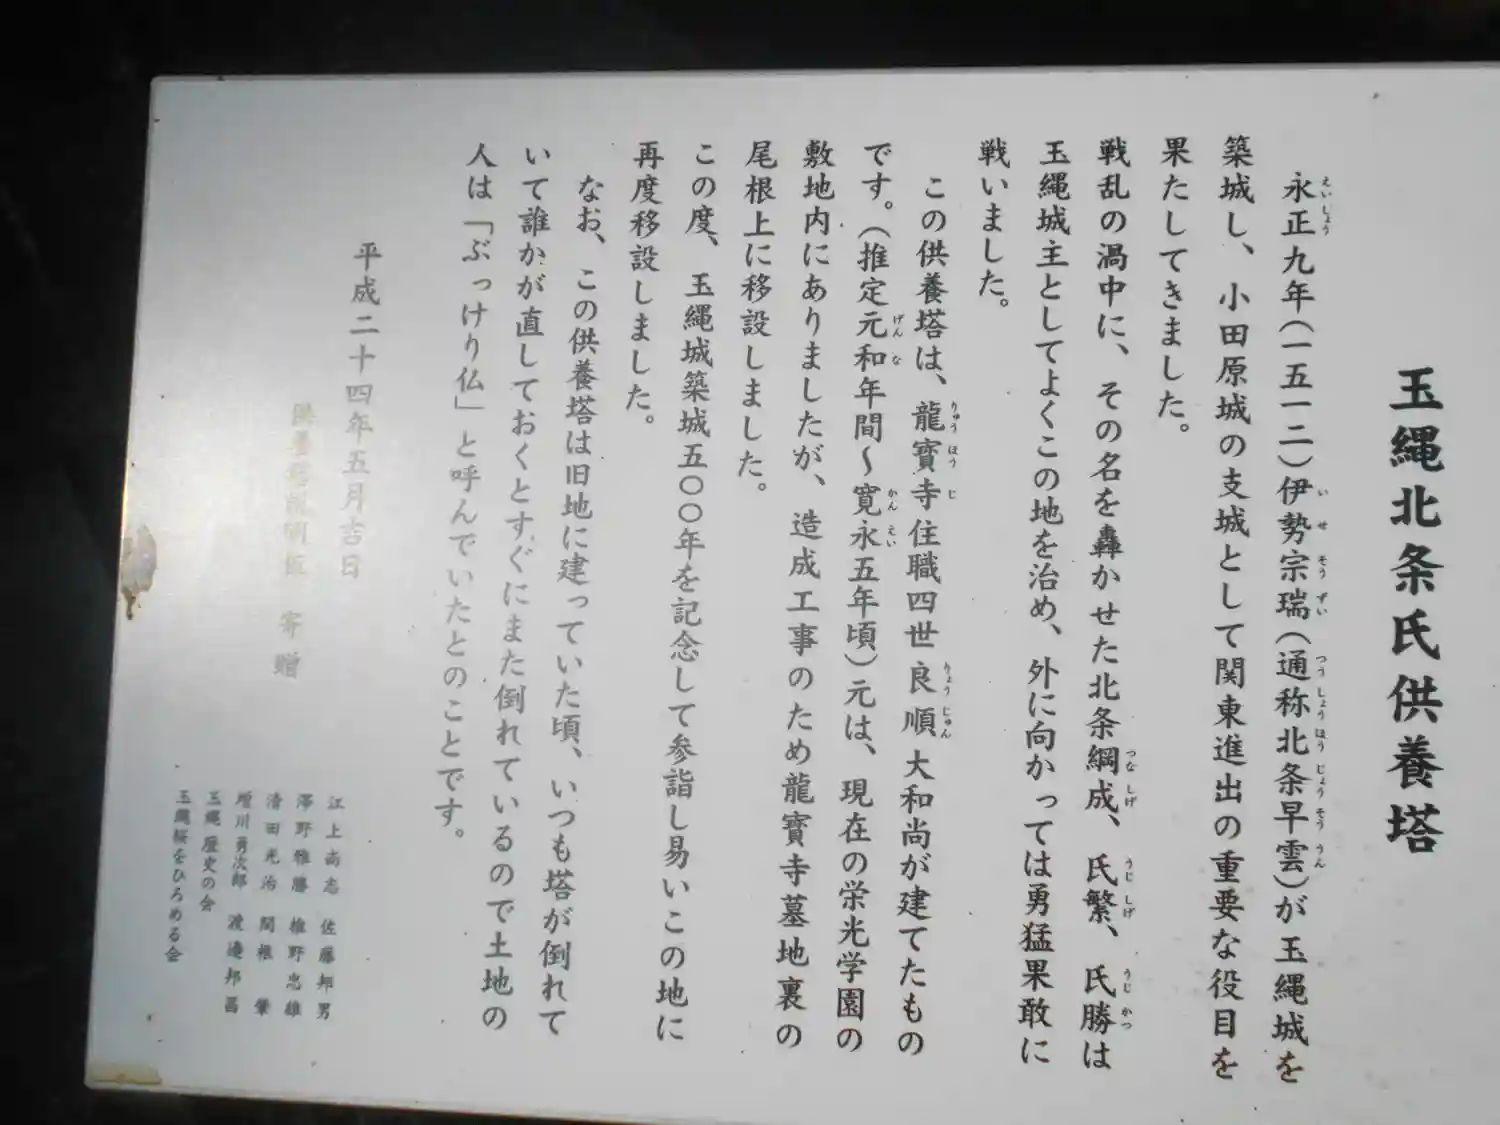 玉縄北条氏供養塔
永正九年(一五一二)伊勢宗瑞(通称北条早雲)が玉縄城を
築城し、小田原城の支城として関東進出の重要な役目を
果たしてきました。
戦乱の渦中に、その名を轟かせた北条綱成、氏繁、氏勝は
玉縄城主としてよくこの地を治め、外に向かっては勇猛果敢に
戦いました。
この供養塔は、龍寶寺住職四世良順大和尚が建てたもの
です。(推定元和年間～寛永五年頃)元は、現在の栄光学園の
敷地内にありましたが、造成工事のため龍寶寺墓地裏の
尾根上に移設しました。
この度、玉縄城築城五〇〇年を記念して参詣し易いこの地に
再度移設しました。
なお、この供養塔は旧地に建っていた頃、いつも塔が倒れて
いて誰かが直しておくとすぐにまた倒れているので土地の
人は「ぶっけり仏」と呼んでいたとのことです。
平成二十四年五月吉日
寄贈
江上尚志 佐藤邦男
澤野雅勝 椎野忠雄
清田光治 関根肇
増川勇次郎 渡邊邦昌
玉縄歴史の会
玉縄桜をひろめる会